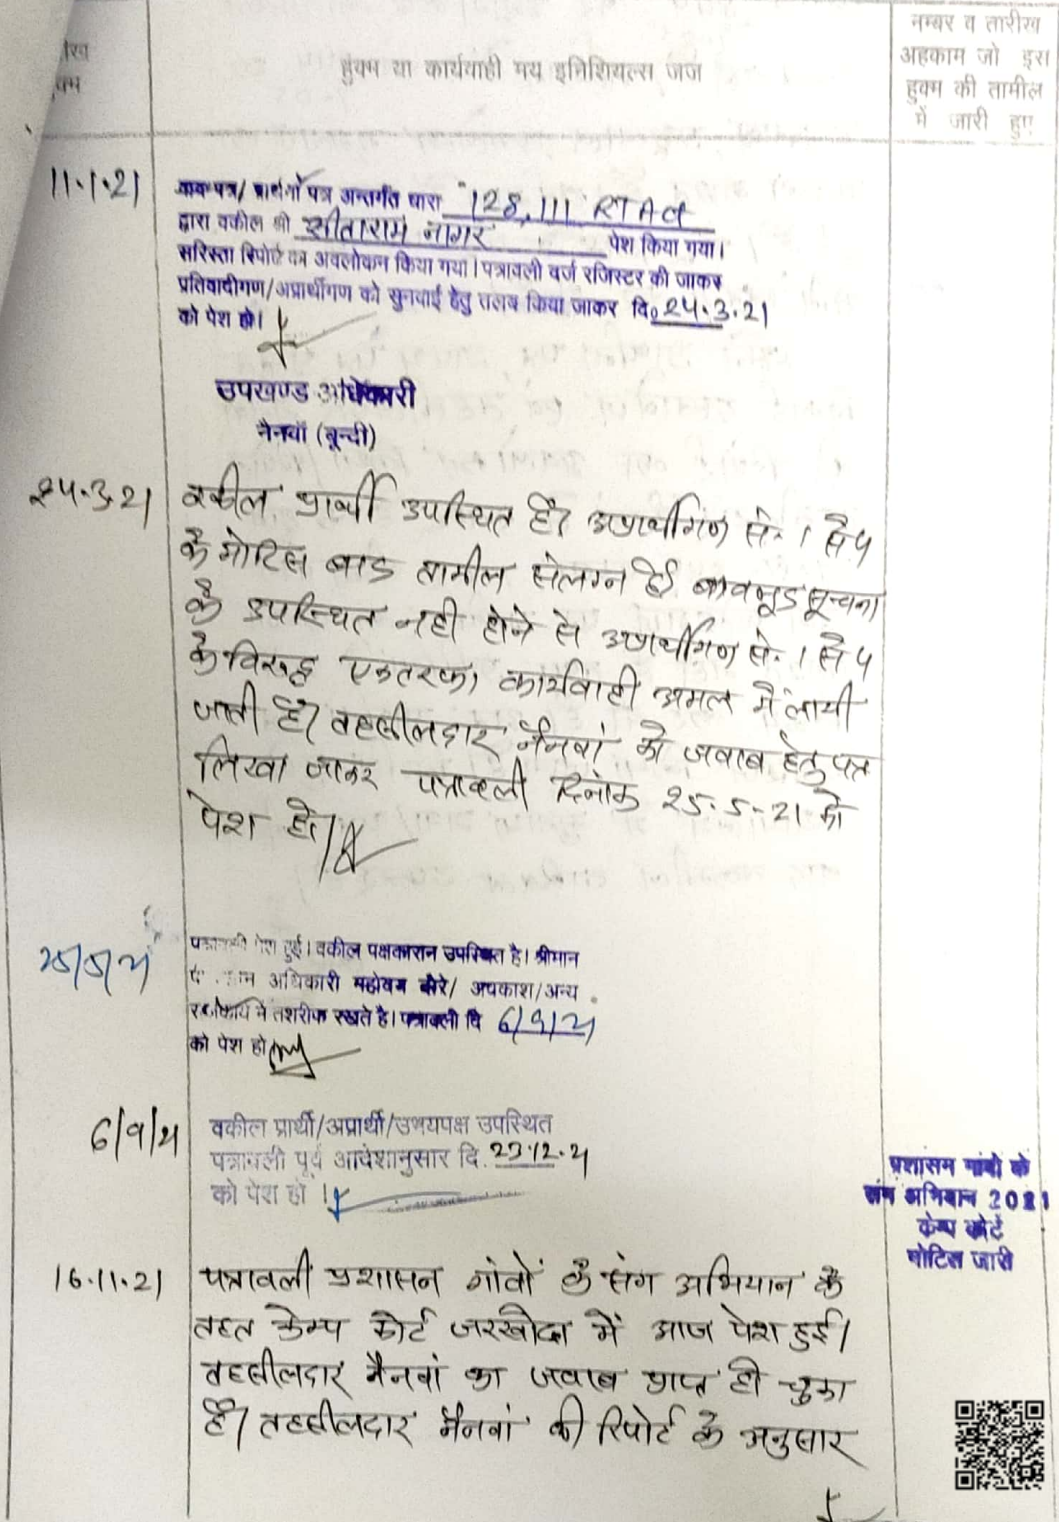 हुक्म या कार्यवाही मय इनिशियल्स जज
नम्बर व तारीख
अहकाम जो इस
हुक्म की तामील
में जारी हुए
11.1.21
वादपत्र/ प्रार्थना पत्र अन्तर्गत धारा 128, 111 RTAct
द्वारा वकील श्री सीताराम नागर पेश किया गया।
सरिस्ता रिपोर्ट का अवलोकन किया गया। पत्रावली दर्ज रजिस्टर की जाकर
प्रतिवादीगण/अप्रार्थीगण को सुनवाई हेतु तलब किया जाकर दि० 24.3.21
को पेश हो।
उपखण्ड अधिकारी
नैनवाँ (बून्दी)
24.3.21
वकील प्रार्थी उपस्थित है। अप्रार्थीगण सं. 1 से 4
के नोटिस बाद तामील संलग्न है। बावजूद सूचना
के उपस्थित नही होने से अप्रार्थीगण सं. 1 से 4
के विरुद्ध एकतरफा कार्यवाही अमल में लायी
जाती है। तहसीलदार नैनवां को जवाब हेतु पत्र
लिखा जाकर पत्रावली दिनांक 25.5.21 को
पेश हो।
25/5/21
पत्रावली पेश हुई। वकील पक्षकारान उपस्थित है। श्रीमान
अधिकारी महोदय दौरे/ अवकाश/अन्य
राजकार्य में तशरीफ रखते है। पत्रावली दि 6/9/21
को पेश हो
6/9/21
वकील प्रार्थी/अप्रार्थी/उभयपक्ष उपस्थित
पत्रावली पूर्व आदेशानुसार दि. 23.12.21
को पेश हो।
प्रशासन गांवो के
संग अभियान 2021
केम्प कोर्ट
नोटिस जारी
16.11.21
पत्रावली प्रशासन गांवों के संग अभियान के
तहत केम्प कोर्ट जरखोदा में आज पेश हुई।
तहसीलदार नैनवां का जवाब प्राप्त हो चुका
है। तहसीलदार नैनवां की रिपोर्ट के अनुसार